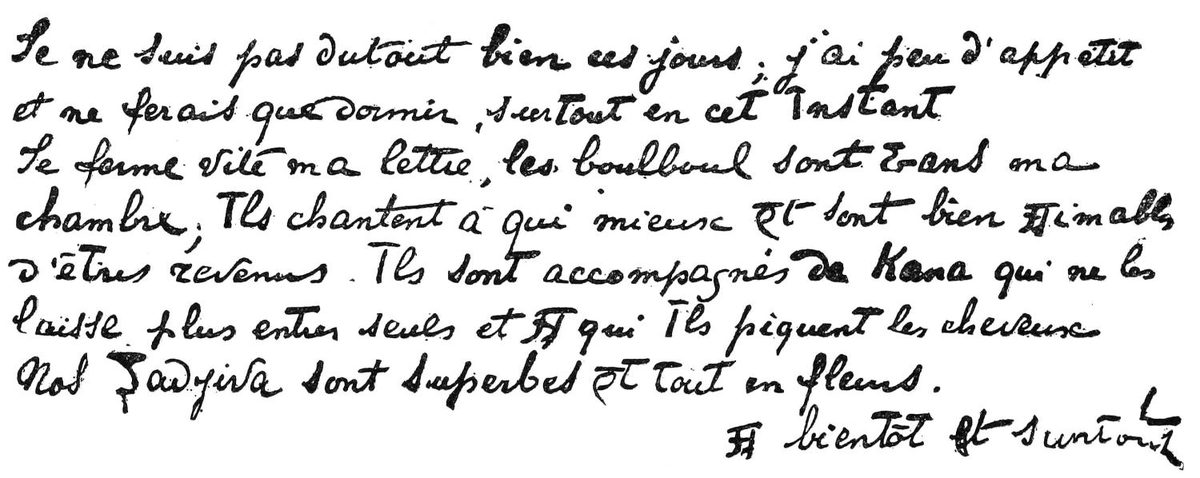 Je ne suis pas dutout bien ces jours ; j'ai peu d'appetit
et ne ferais que dormir, surtout en cet Instant
Je ferme vite ma lettre, les boulboul sont dans ma
chambre ; Ils chantent à qui mieux et sont bien Aimables
d'êtres revenus. Ils sont accompagnés de Kana qui ne les
laisse plus entrer seuls et A qui Ils piquent les cheveux
Nos Zadyiva sont superbes et tout en fleurs.
A bientôt et surtout